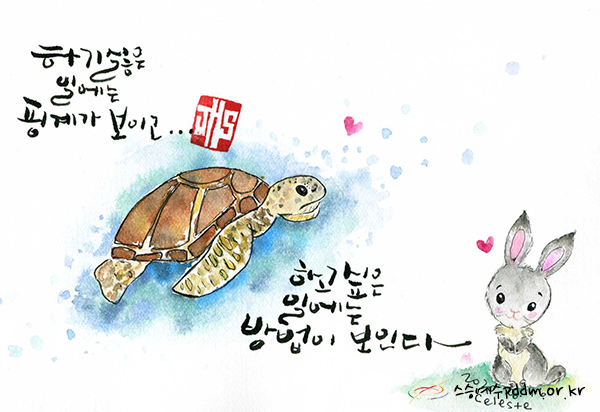 하기 싫은
일에는
핑계가 보이고...
JHS
하고 싶은
일에는
방법이 보인다
pddm.or.kr
Celeste